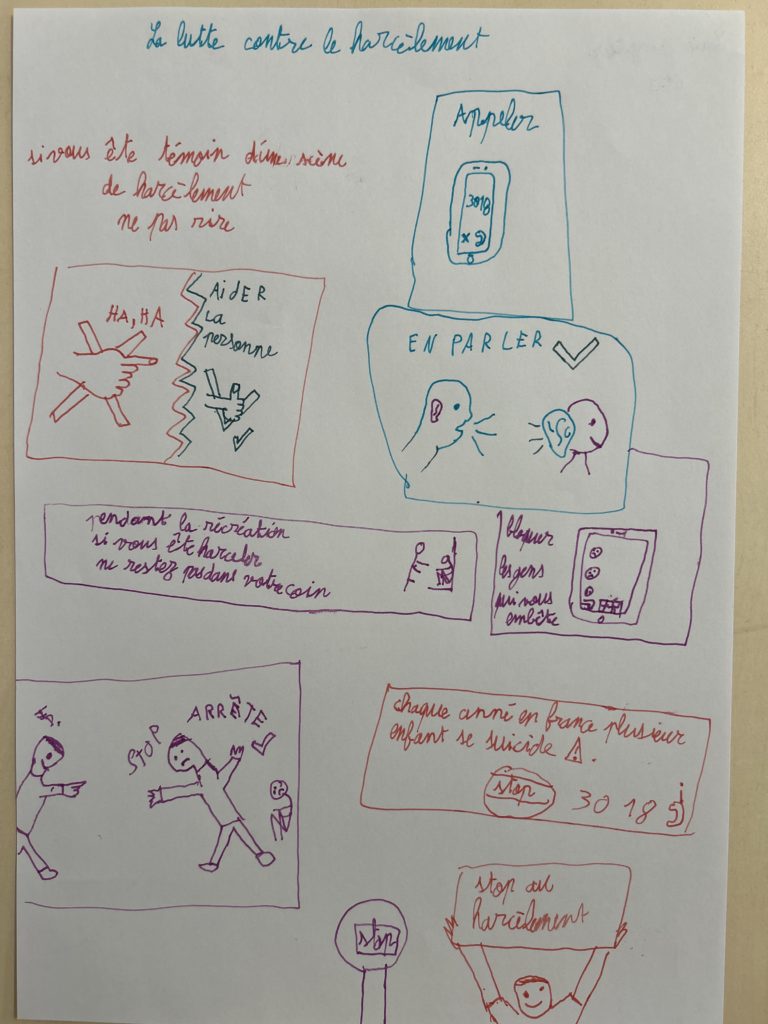 La lutte contre le harcèlement
si vous ête témoin d'une scène
de harcèlement
ne pas rire
Appeler
3018
HA, HA
AiDER
la
personne
EN PARLER
pendant la récréation
si vous ête harceler
ne restez pas dans votre coin
bloquer
les gens
qui vous
embête
STOP
ARRÊTE
chaque anné en france plusieur
enfant se suicide ⚠.
stop 3018
stop au
harcèlement
stop